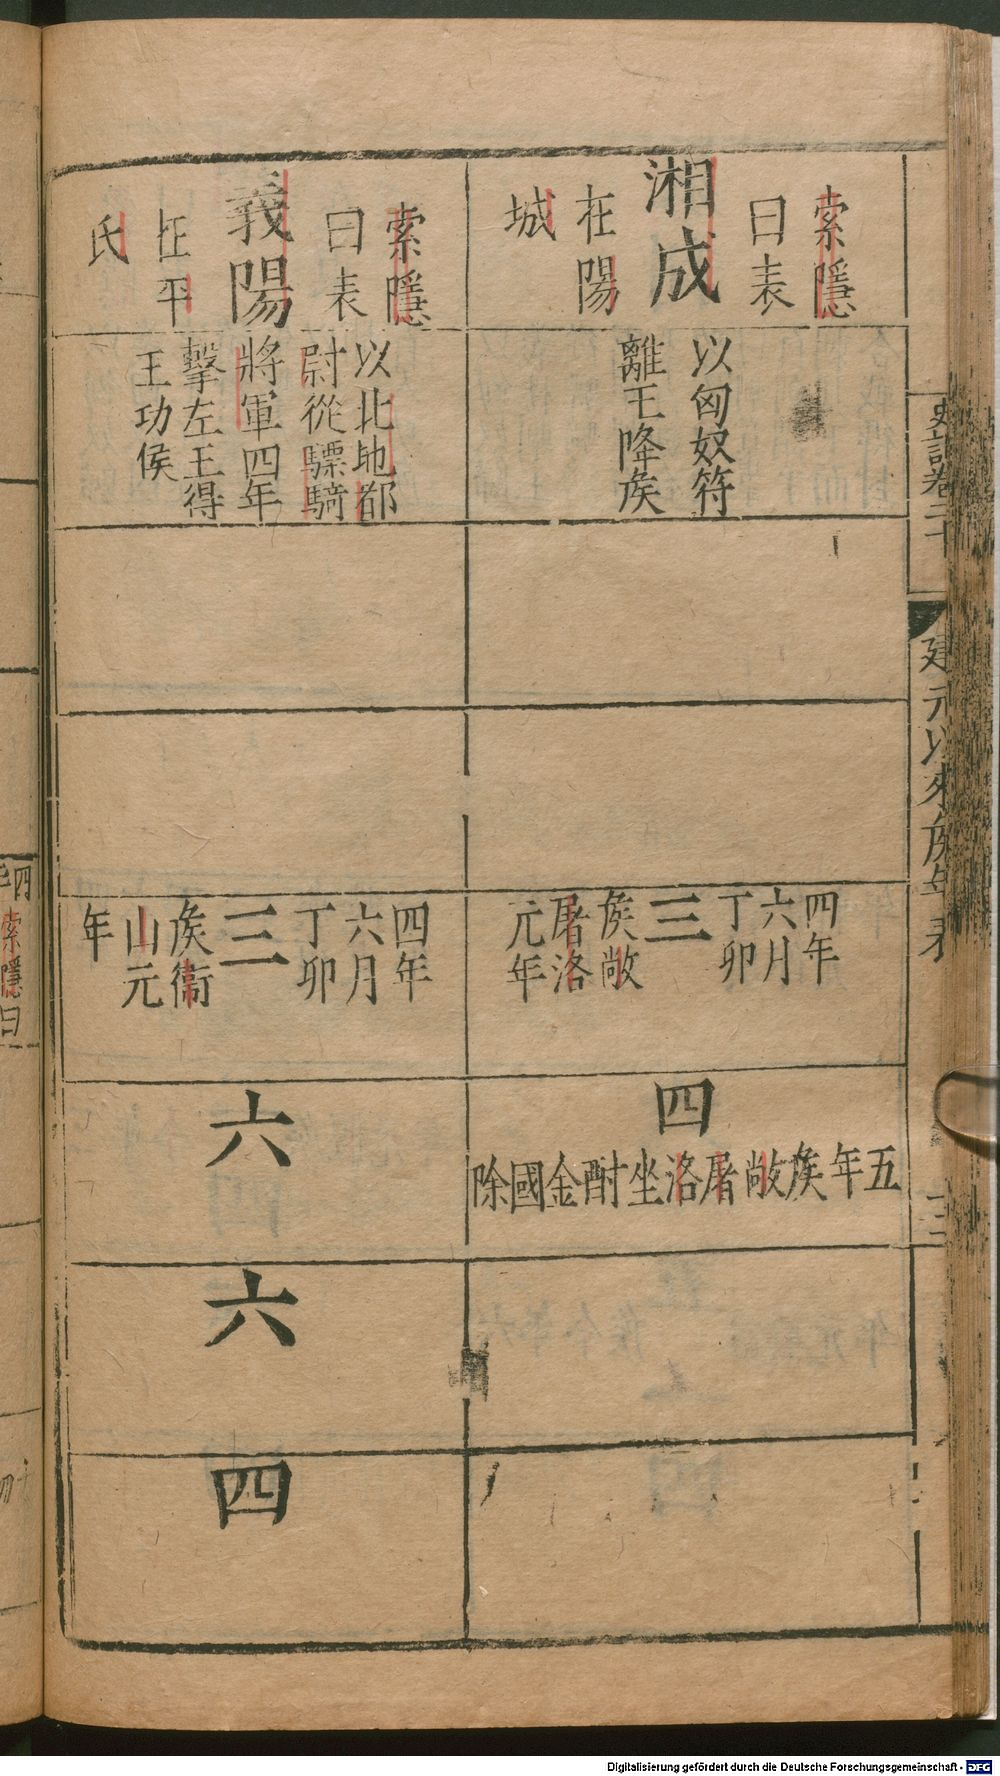 史記卷二十
建元以來侯年表
索隱
曰表
湘成
在陽
城
以匈奴符
離王降矦
四年
六月
丁卯
三
矦敞
屠洛
元年
四
五年矦敞屠洛坐酎金國除
索隱
曰表
義陽
在平
氏
以北地都
尉從驃騎
將軍四年
擊左王得
王功侯
四年
六月
丁卯
三
矦衞
山元
年
六
六
四
四
索隱曰
Digitalisierung gefördert durch die Deutsche Forschungsgemeinschaft - DFG